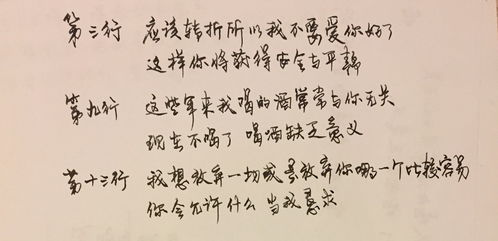 第三行 应该转折所以我不要爱你好了
这样你将获得安全与平静
第九行 这些年来我喝的酒常常与你无关
现在不喝了 喝酒缺乏意义
第十三行 我想放弃一切或是放弃你哪一个比较容易
你会允许什么 当我恳求